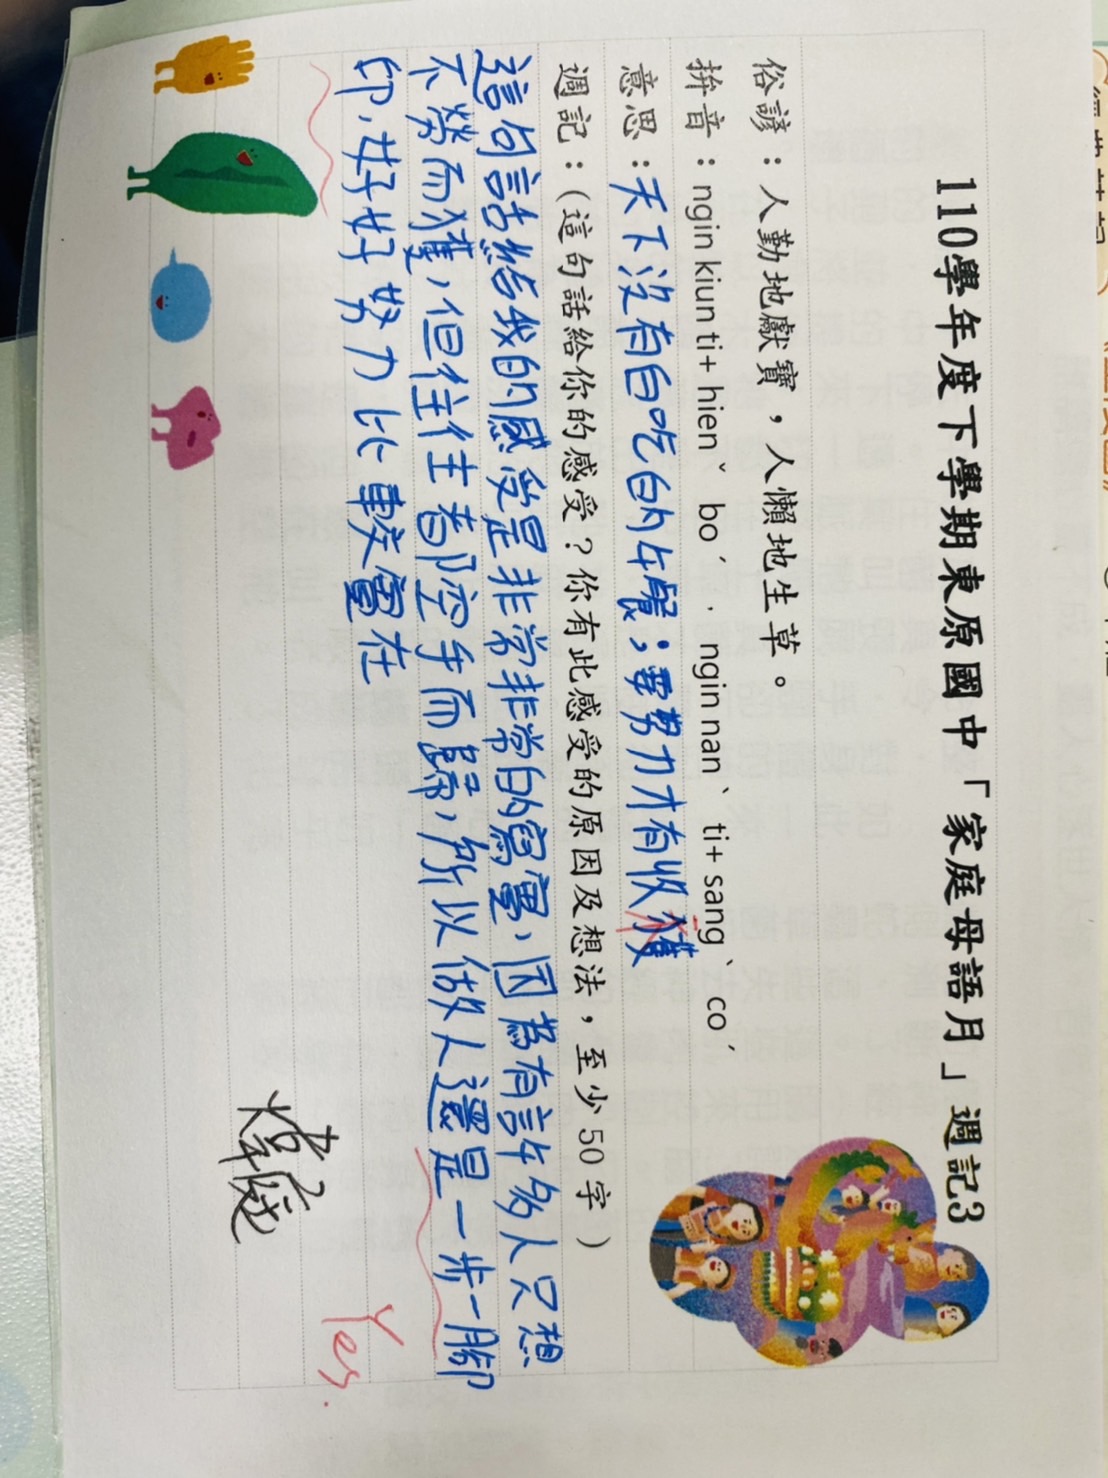 110學年度下學期東原國中「家庭母語月」週記3
俗諺：人勤地獻寶，人懶地生草。
拼音：ngin kiun ti+ hienˇ boˊ．ngin nanˋ ti+ sangˋ coˊ
意思：天下沒有白吃的午餐；要努力才有收獲
週記：（這句話給你的感受？你有此感受的原因及想法，至少50字）
這句話給我的感受是非常非常的寫實，因為有許多人只想
不勞而獲，但往往都空手而歸，所以做人還是一步一腳
印，好好努力比較實在
Yes.